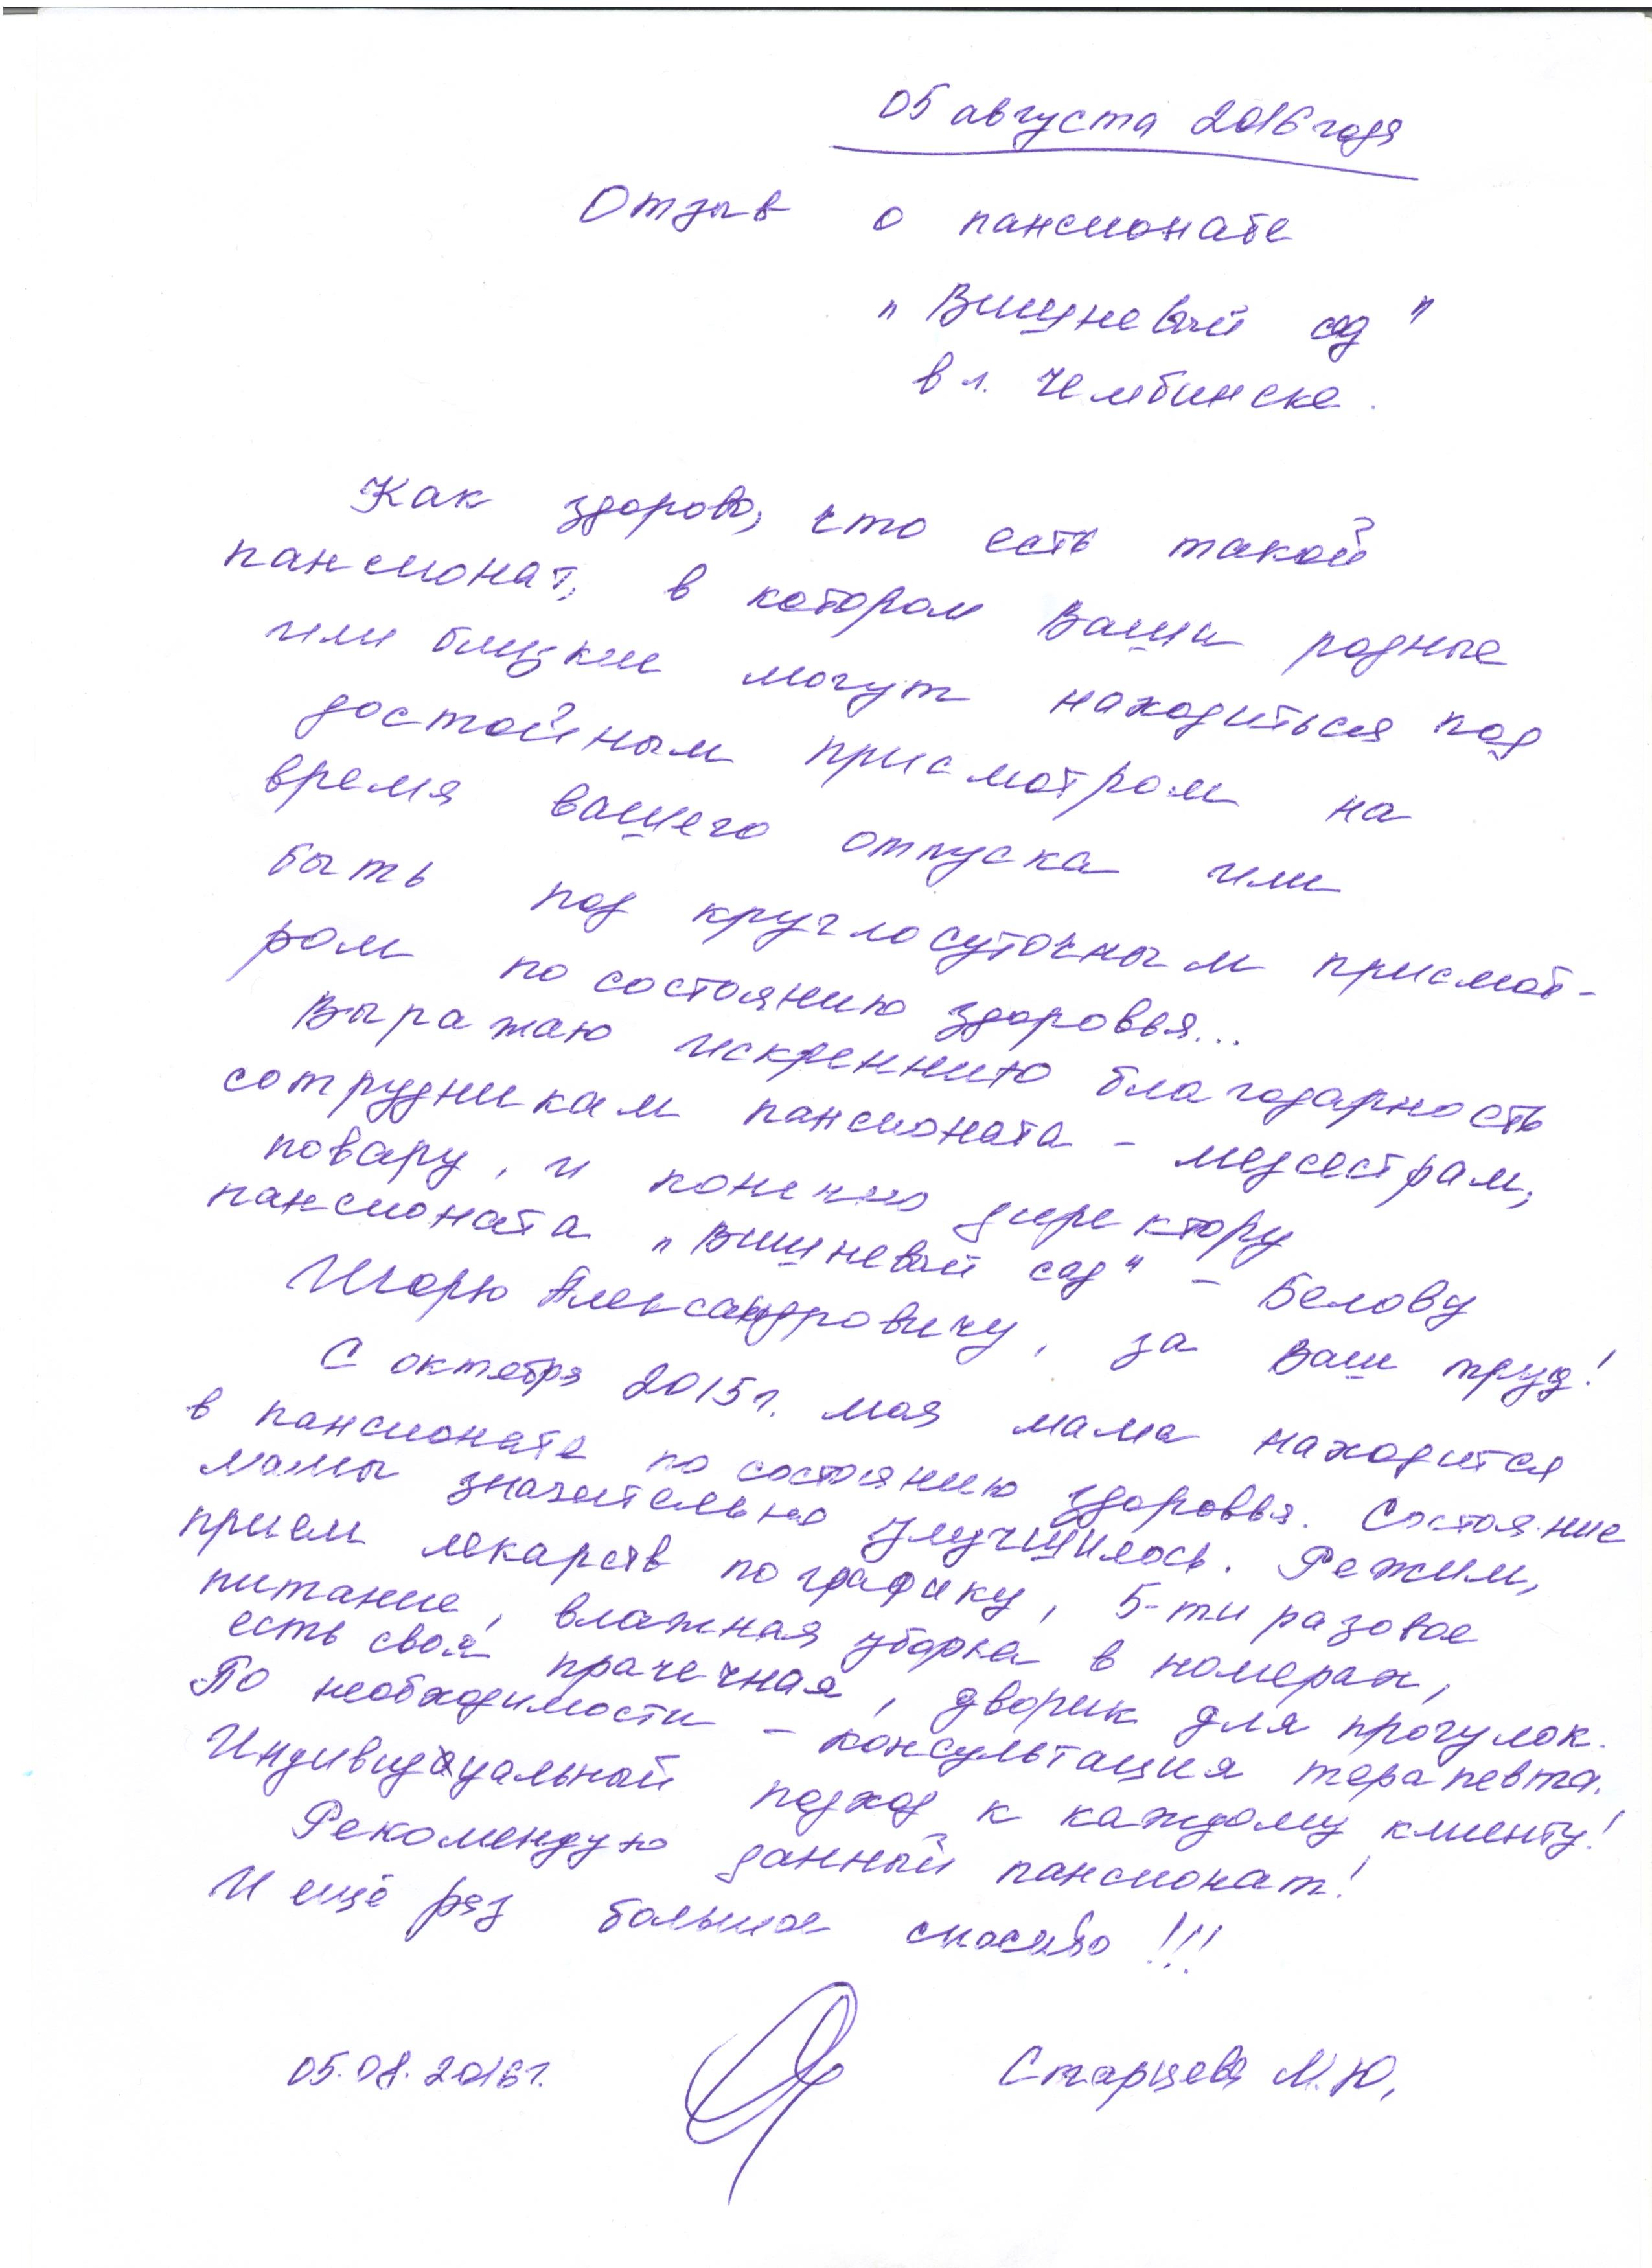 05 августа 2016 года
Отзыв о пансионате
"Вишневый сад"
в г. Челябинске.
Как здорово, что есть такой
пансионат, в котором Ваши родные
или близкие могут находиться под
достойным присмотром на
время вашего отпуска или
быть под круглосуточным присмот-
ром по состоянию здоровья...
Выражаю искреннию благодарность
сотрудникам пансионата - медсестрам,
повару, и конечно директору
пансионата "Вишневый сад" - Белову
Игорю Александровичу, за Ваш труд!
С октября 2015 г. моя мама находится
в пансионате по состоянию здоровья. Состояние
мамы значительно улучшилось. Режим,
прием лекарств по графику, 5-ти разовое
питание, влажная уборка в номерах,
есть своя прачечная, дворик для прогулок.
По необходимости - консультация терапевта.
Индивидуальный подход к каждому клиенту!
Рекомендую данный пансионат!
И ещё раз большое спасибо!!!
05.08.2016 г.
Старцева М.Ю.